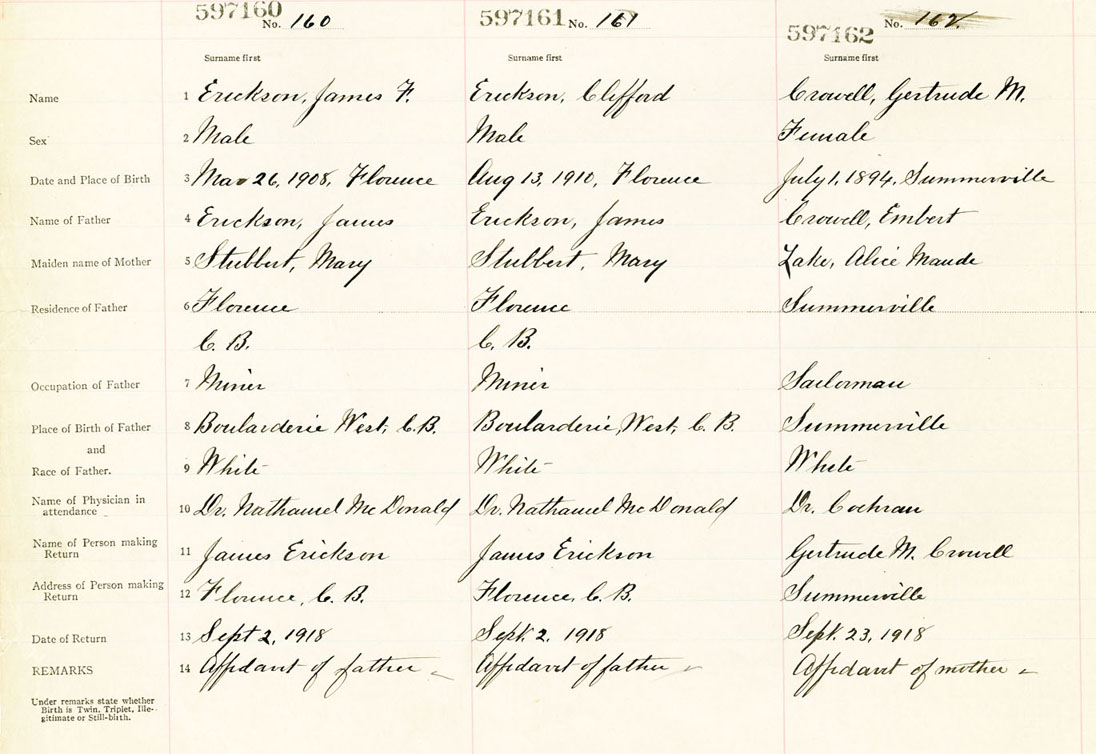 597160 No. 160 597161 No. 161 597162 No. 162
Surname first Surname first Surname first
Name 1 Erickson, James F. Erickson, Clifford Crowell, Gertrude M.
Sex 2 Male Male Female
Date and Place of Birth 3 Mar 26, 1908, Florence Aug 13, 1910, Florence July 1, 1894, Summerville
Name of Father 4 Erickson, James Erickson, James Crowell, Embert
Maiden name of Mother 5 Stubbert, Mary Stubbert, Mary Lake, Alice Maude
Residence of Father 6 Florence Florence Summerville
C. B. C. B.
Occupation of Father 7 Miner Miner Sailorman
Place of Birth of Father 8 Boularderie West, C.B. Boularderie, West, C. B. Summerville
and
Race of Father. 9 White White White
Name of Physician in attendance 10 Dr. Nathaniel McDonald Dr. Nathaniel McDonald Dr. Cochran
Name of Person making Return 11 James Erickson James Erickson Gertrude M. Crowell
Address of Person making Return 12 Florence, C. B. Florence, C. B. Summerville
Date of Return 13 Sept 2, 1918 Sept. 2, 1918 Sept. 23, 1918
REMARKS 14 Affidavit of father Affidavit of father Affidavit of mother
Under remarks state whether
Birth is Twin, Triplet, Ille-
gitimate or Still-birth.